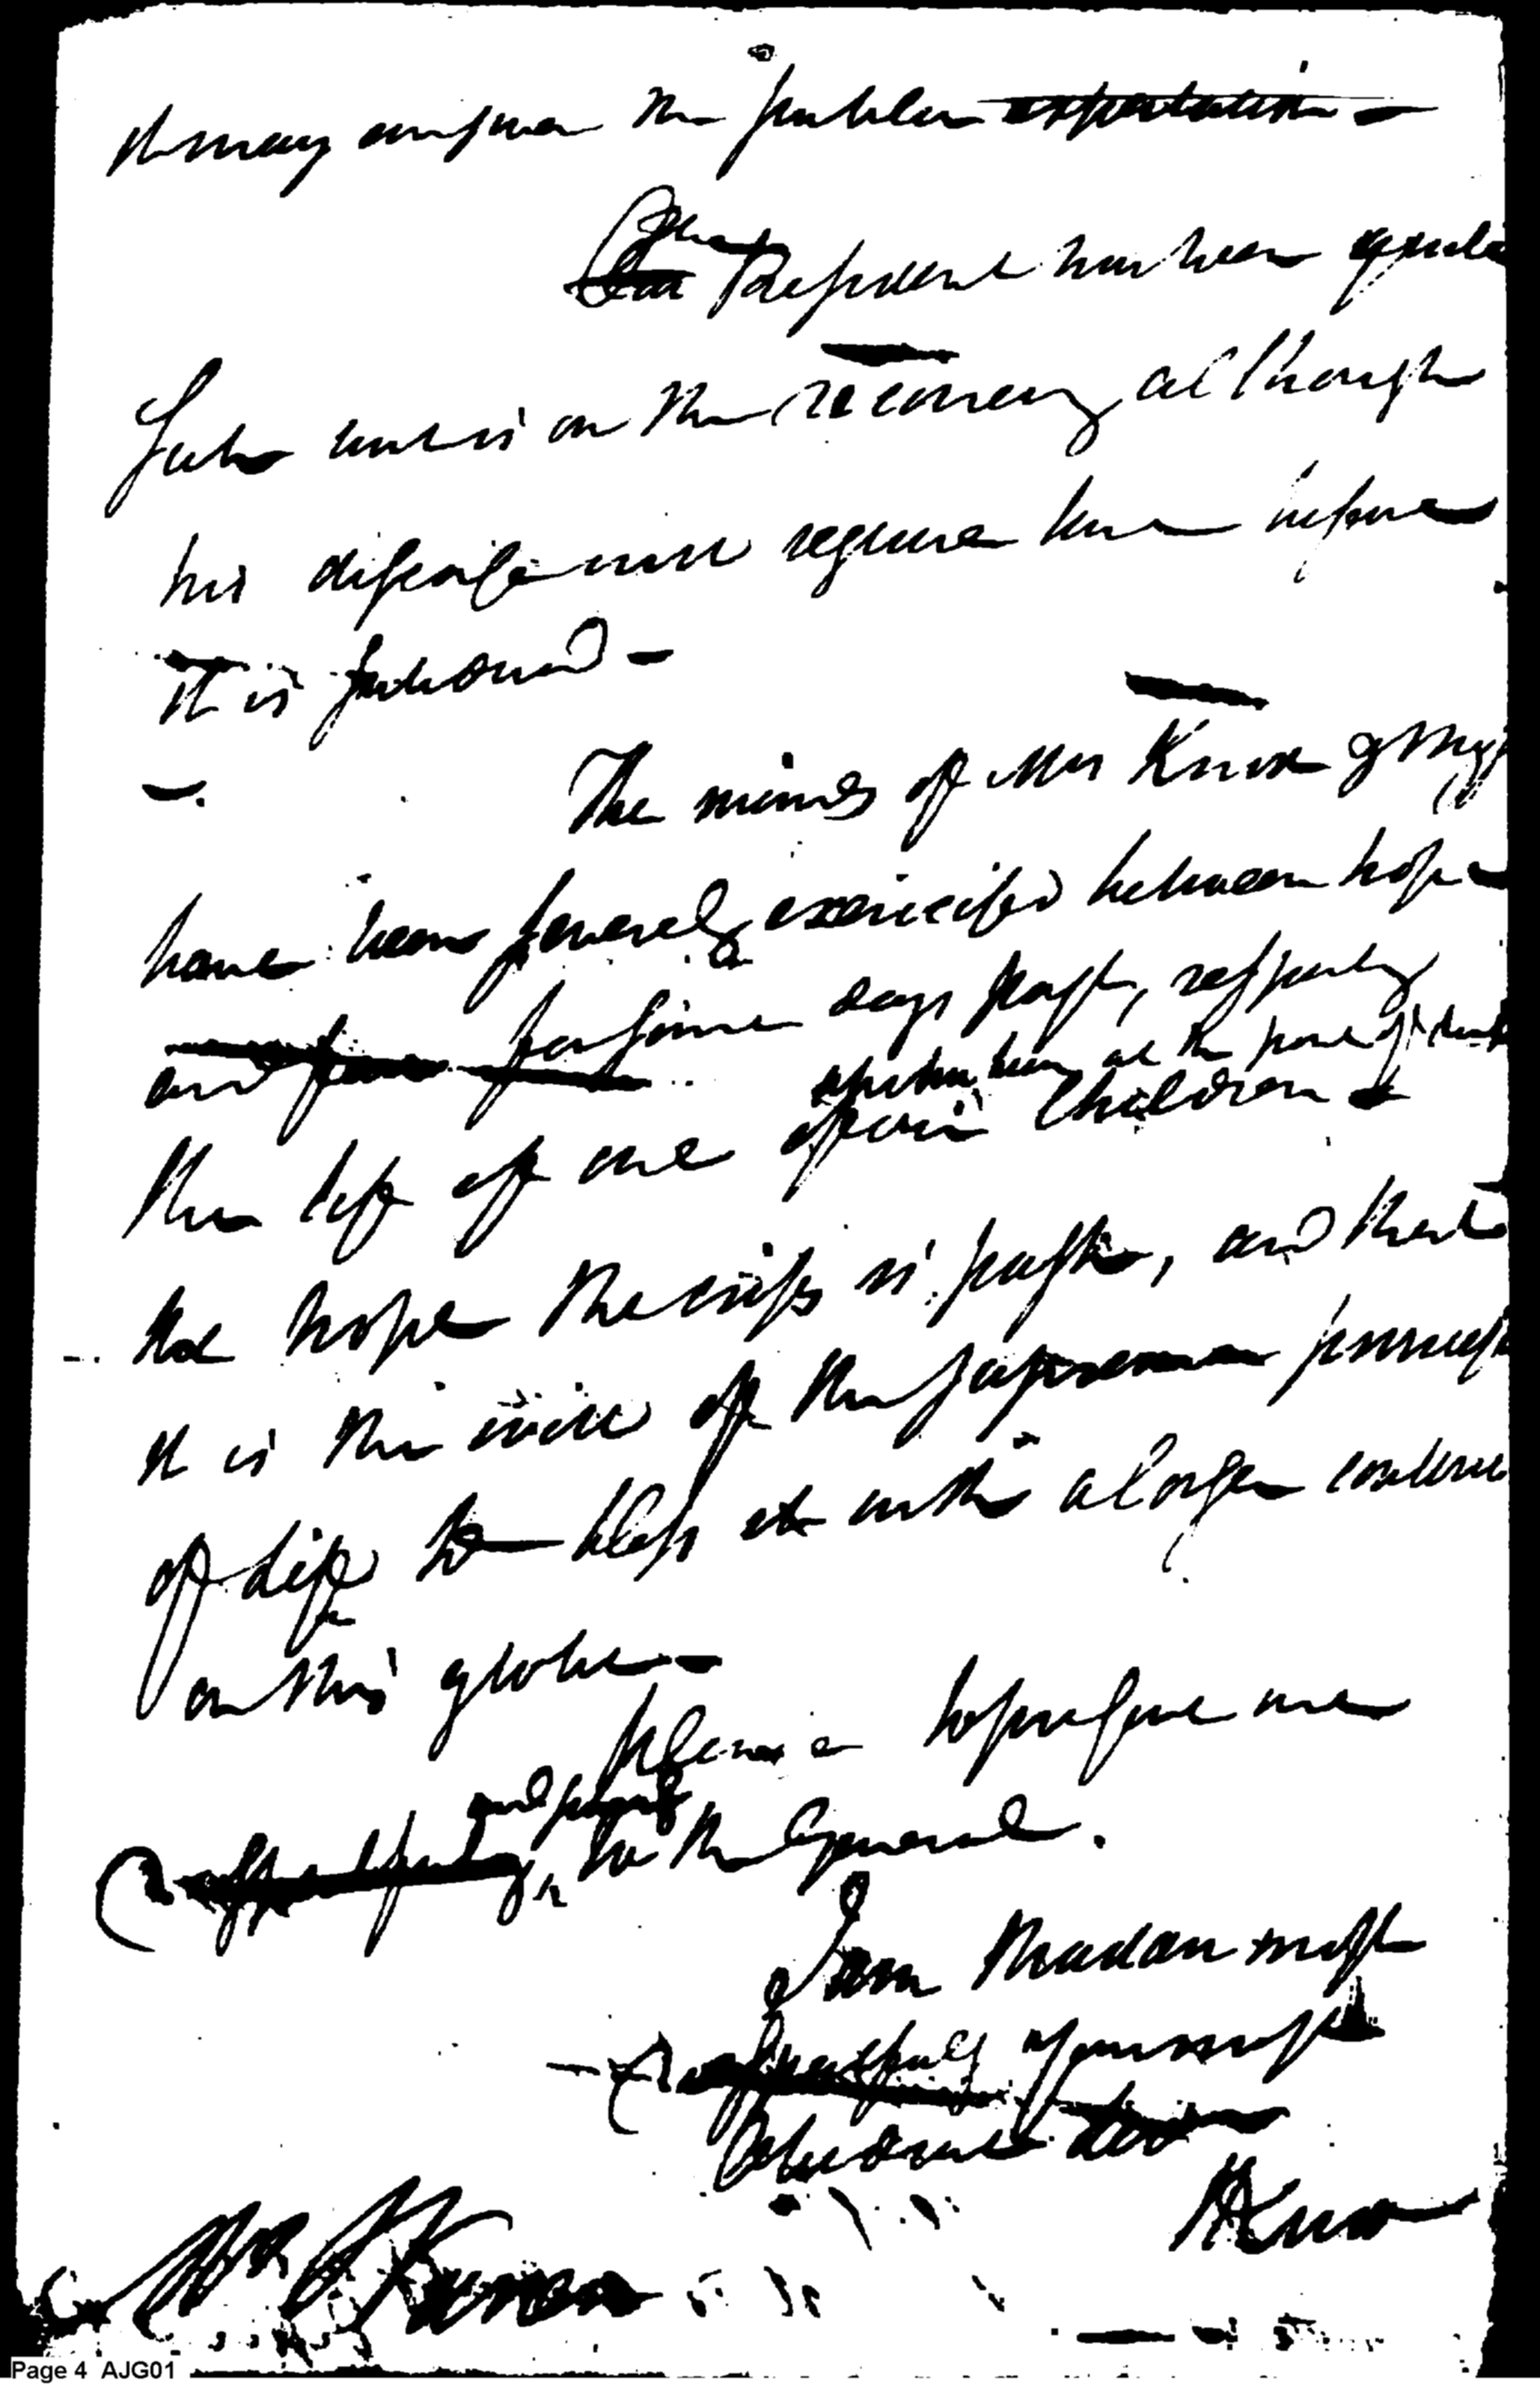 it may answer the public expectation —
The
Our President has been quite
sick but is on the recovery although
his disease will require time before
it is subdued —
The minds of Mrs Knox & my
have been severely exercised between hope
and fear for some days past, respecting
the life of one of our Children
the hope the crisis is past, and that
it is the will of the supreme principle
of life to bless it with a longer continu
on this globe —
Please to present me
and
respectfully to the General.
I am Madam most
respectfully Your most
Obedient
HKnox
Mrs
Page 4 AJG01